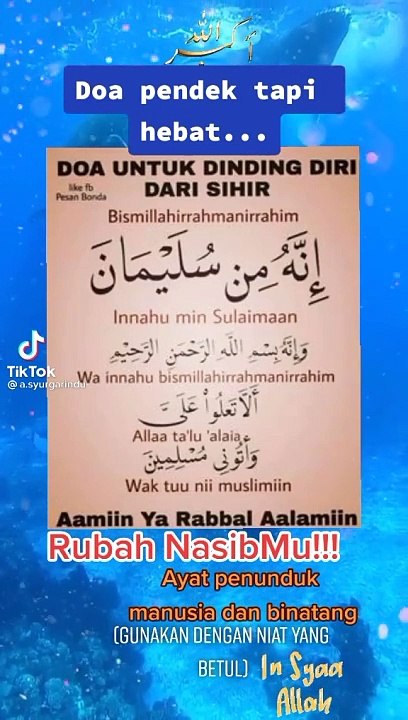 الله أكبر
Doa pendek tapi
hebat...
DOA UNTUK DINDING DIRI
DARI SIHIR
like fb
Pesan Bonda
Bismillahirrahmanirrahim
إِنَّهُ مِن سُلَيْمَانَ
Innahu min Sulaimaan
وَإِنَّهُ بِسْمِ اللَّهِ الرَّحْمَنِ الرَّحِيْمِ
Wa innahu bismillahirrahmanirrahim
أَلَّا تَعْلُوا۟ عَلَىَّ
Allaa ta'lu 'alaia
وَأْتُونِى مُسْلِمِينَ
Wak tuu nii muslimiin
Aamiin Ya Rabbal Aalamiin
TikTok
@a.syurgarindu
Rubah NasibMu!!!
Ayat penunduk
manusia dan binatang
(GUNAKAN DENGAN NIAT YANG
BETUL) In Syaa
Allah